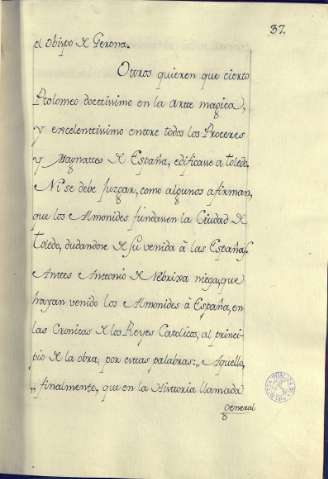 37.
el Obispo de Gerona.
Otros quieren que cierto
Ptolomeo doctissimo en la arte magica,
y encelentissimo entre todos los Proceres
y Magnates de España, edificasse a Toledo.
Ni se debe juzgar, como algunos afirman,
que los Almonides fundassen la Ciudad de
Toledo, dudandose de su venida à las Españas,
Antes Antonio de Nebrixa niega, que
hayan venido los Almonides à España, en
las Cronicas de los Reyes Catolicos, al princi-
pio de la obra, por estas palabras: „ Aquello,
„ finalmente, que en la Historia llamada
General